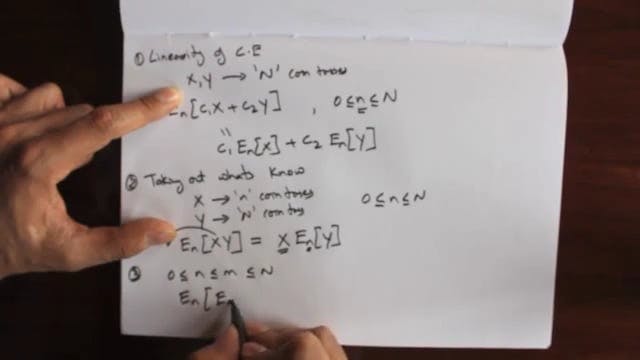 ① Linearity of C.E
X, Y → 'N' coin tosses
En[C1X + C2Y] , 0 ≤ n ≤ N
"
C1 En[X] + C2 En[Y]
② Taking out whats Know
X → 'n' coin tosses 0 ≤ n ≤ N
Y → 'N' coin tos
En[XY] = X En[Y]
③ 0 ≤ n ≤ m ≤ N
En[E